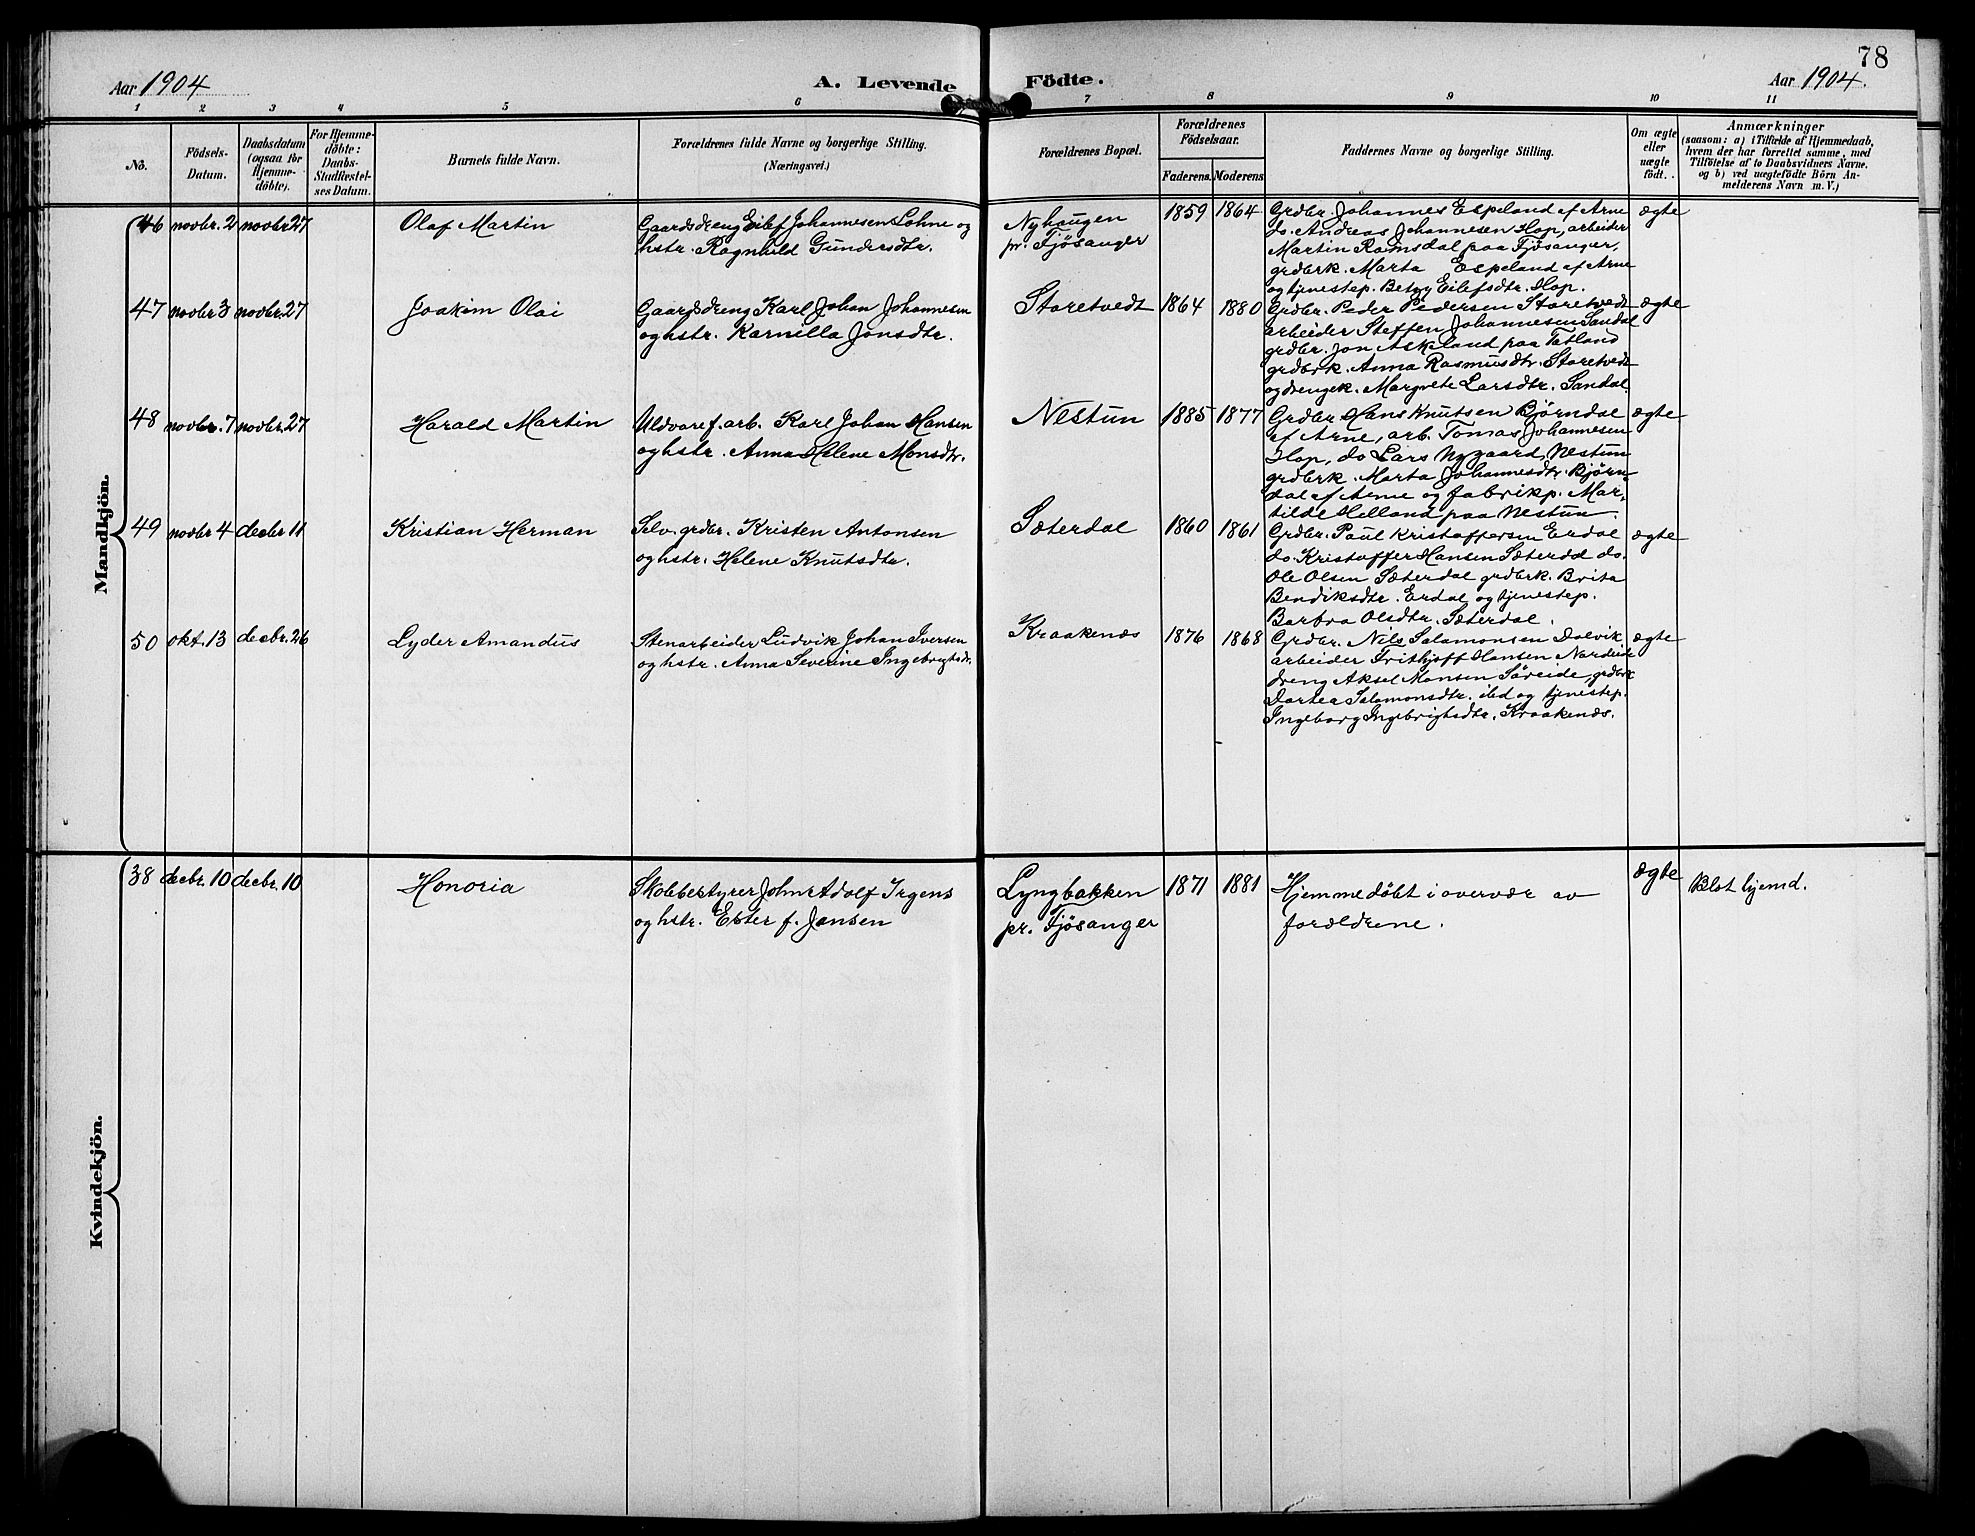 78
Aar 1904
A. Levende Födte.
Aar 1904.
1 2 3 4 5 6 7 8 9 10 11
No.
Födsels-
Datum.
Daabsdatum
(ogsaa for
Hjemme-
döbte).
For Hjemme-
döbte:
Daabs-
Stadfæstel-
ses Datum.
Barnets fulde Navn.
Forældrenes fulde Navne og borgerlige Stilling.
(Næringsvei.)
Forældrenes Bopæl.
Forældrenes
Födselsaar.
Faderens. Moderens
Faddernes Navne og borgerlige Stilling.
Om ægte
eller
uægte
födt.
Anmærkninger
(saasom: a) i Tilfælde af Hjemmedaab,
hvem der har forrettet samme, med
Tilföielse af to Daabsvidners Navne.
og b) ved uægtefödte Börn An-
melderens Navn m. V.)
Mandkjön.
46 novbr. 2 novbr 27
Olaf Martin
Gaardsdreng Eilef Johannesen Løhne og
hstr. Ragnhild Gundersdtr.
Nyhaugen
pr. Fjösanger
1859 1864
Grdbr. Johannes Espeland af Arne
do. Andreas Johannesen Hop, arbeider
Martin Ramsdal paa Fjösanger,
grdbrk. Marta Espeland af Arne
og tjenestep. Betsy Eilefsdtr. Hop.
ægte
47 novbr 3 novbr. 27
Joakim Olai
Gaardsdreng Karl Johan Johannesen
og hstr. Karnilla Jonsdtr.
Storetvedt
1864 1880
Grdbr. Peder Pedersen Storetvedt
arbeider Steffen Johannesen Sandal
grdbr. Jon Askeland paa Tatland
grdbrk. Anna Rasmusdtr. Storetvedt
og drengek. Margrete Larsdtr. Sandal.
ægte
48 novbr. 7 novbr. 27
Harald Martin
Uldvaref. arb. Karl Johan Hansen
og hstr. Anna Helene Monsdtr.
Nestun
1885 1877
Grdbr. Hans Knutsen Bjørndal
af Arne, arb. Tomas Johannesen
Hop, do Lars Nygaard, Nestun
grdbrk. Marta Johannesdtr. Bjørn-
dal af Arne og fabrikp. Mar-
tilde Helland paa Nestun.
ægte
49 novbr 4 decbr 11
Kristian Herman
Selv. grdbr. Kristen Antonsen
og hstr. Helene Knutsdtr.
Sæterdal
1860 1861
Grdbr. Paul Kristoffersen Erdal
do. Kristoffer Hansen Sæterdal do.
Ole Olsen Sæterdal grdbrk. Brita
Bendiksdtr. Erdal og tjenestep.
Barbra Olsdtr. Sæterdal.
ægte
50 okt. 13 decbr. 26
Lyder Amandus
Stenarbeider Ludvik Johan Iversen
og hstr. Anna Severine Ingebrigtsdr.
Kraakenæs
1876 1868
Grdbr. Nils Salamonsen Dalvik
arbeider Frithjoff Hansen Nordeide
dreng Aksel Monsen Søreide, grdbrk
Dortea Salamonsdtr. ibd og tjenestep.
Ingeborg Ingebrigtsdtr. Kraakenæs.
ægte
Kvindekjön.
38 decbr. 10 decbr. 10
Honoria
Skolebestyrer John Adolf Irgens
og hstr. Ester f. Jansen
Lyngbakken
pr. Fjösanger
1871 1881
Hjemmedøbt i overvær av
forældrene.
ægte
Blot hjemd.